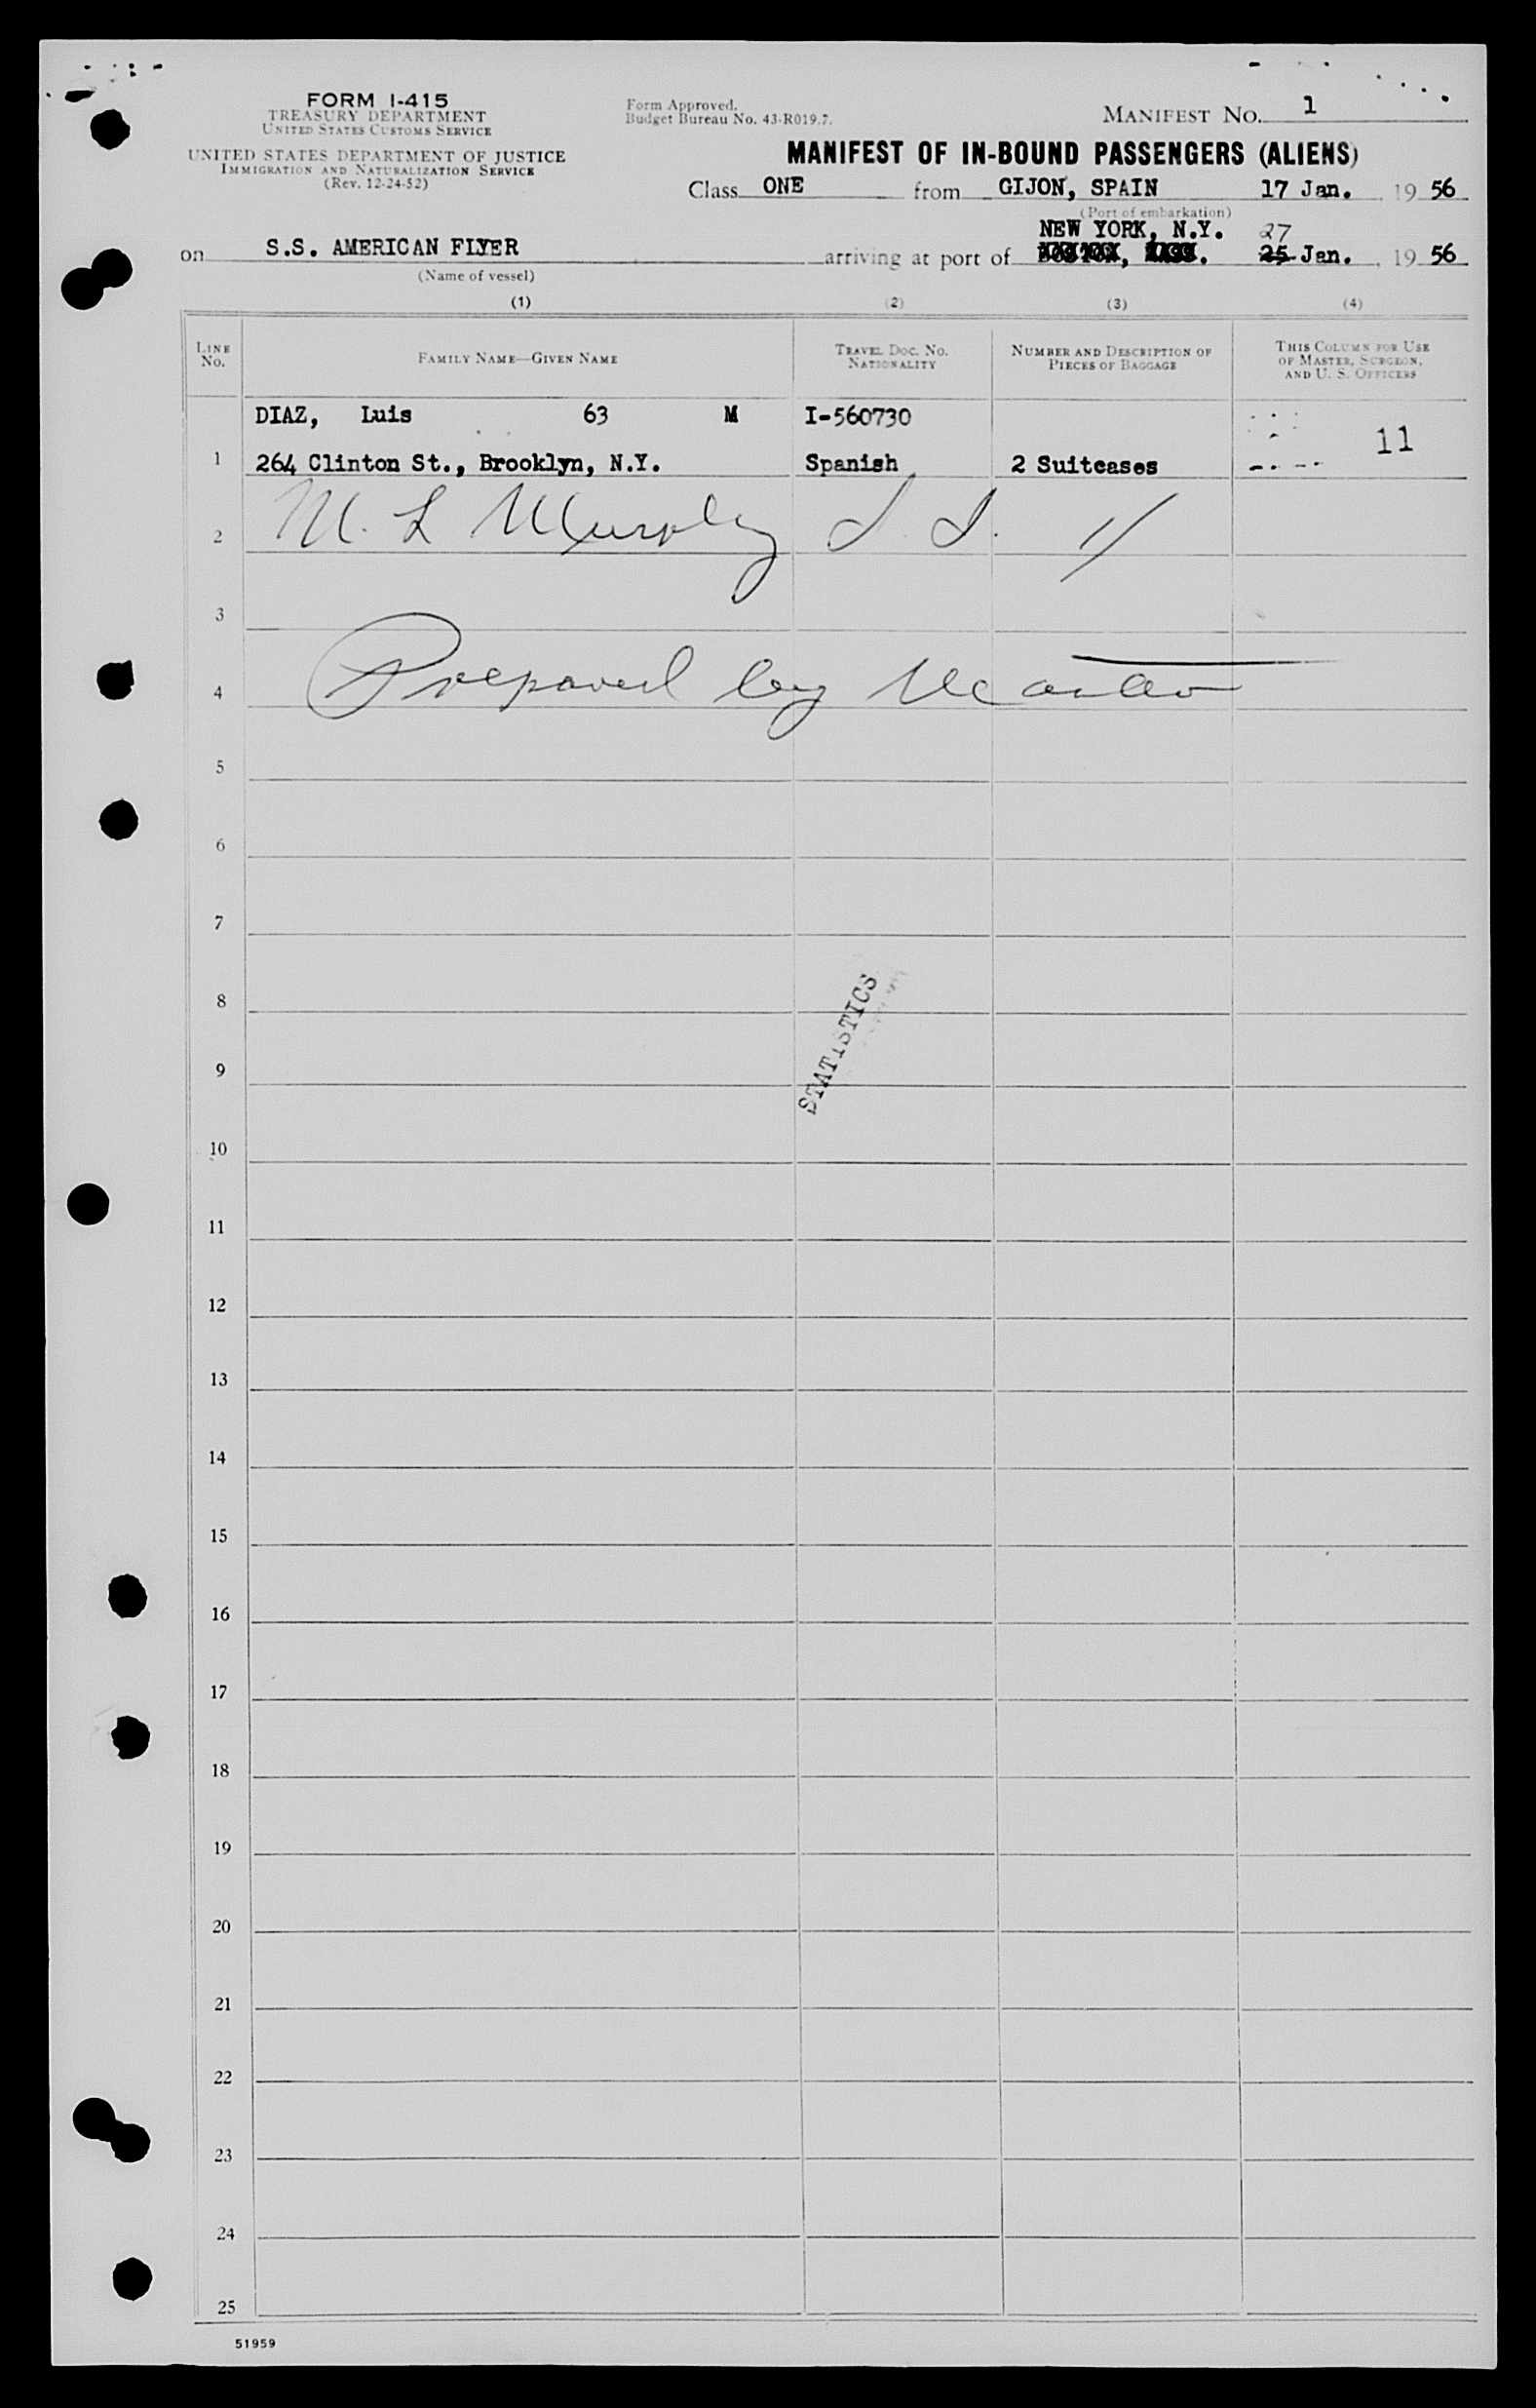 FORM I-415
TREASURY DEPARTMENT
UNITED STATES CUSTOMS SERVICE
UNITED STATES DEPARTMENT OF JUSTICE
IMMIGRATION AND NATURALIZATION SERVICE
(Rev. 12-24-52)
Form Approved.
Budget Bureau No. 43-R019.7.
MANIFEST NO. 1
MANIFEST OF IN-BOUND PASSENGERS (ALIENS)
Class ONE from GIJON, SPAIN 17 Jan. 1956
(Port of embarkation)
NEW YORK, N.Y. 27
on S.S. AMERICAN FLYER arriving at port of BOSTON, MASS. 25 Jan. 1956
(Name of vessel)
(1) (2) (3) (4)
LINE No. FAMILY NAME—GIVEN NAME TRAVEL DOC. NO. NATIONALITY NUMBER AND DESCRIPTION OF PIECES OF BAGGAGE THIS COLUMN FOR USE OF MASTER, SURGEON, AND U. S. OFFICERS
DIAZ, Luis 63 M I-560730 11
1 264 Clinton St., Brooklyn, N.Y. Spanish 2 Suitcases
2 M. L Murphy
3
4 Prepared by Master
5
6
7
8
STATISTICS
9
10
11
12
13
14
15
16
17
18
19
20
21
22
23
24
25
51959